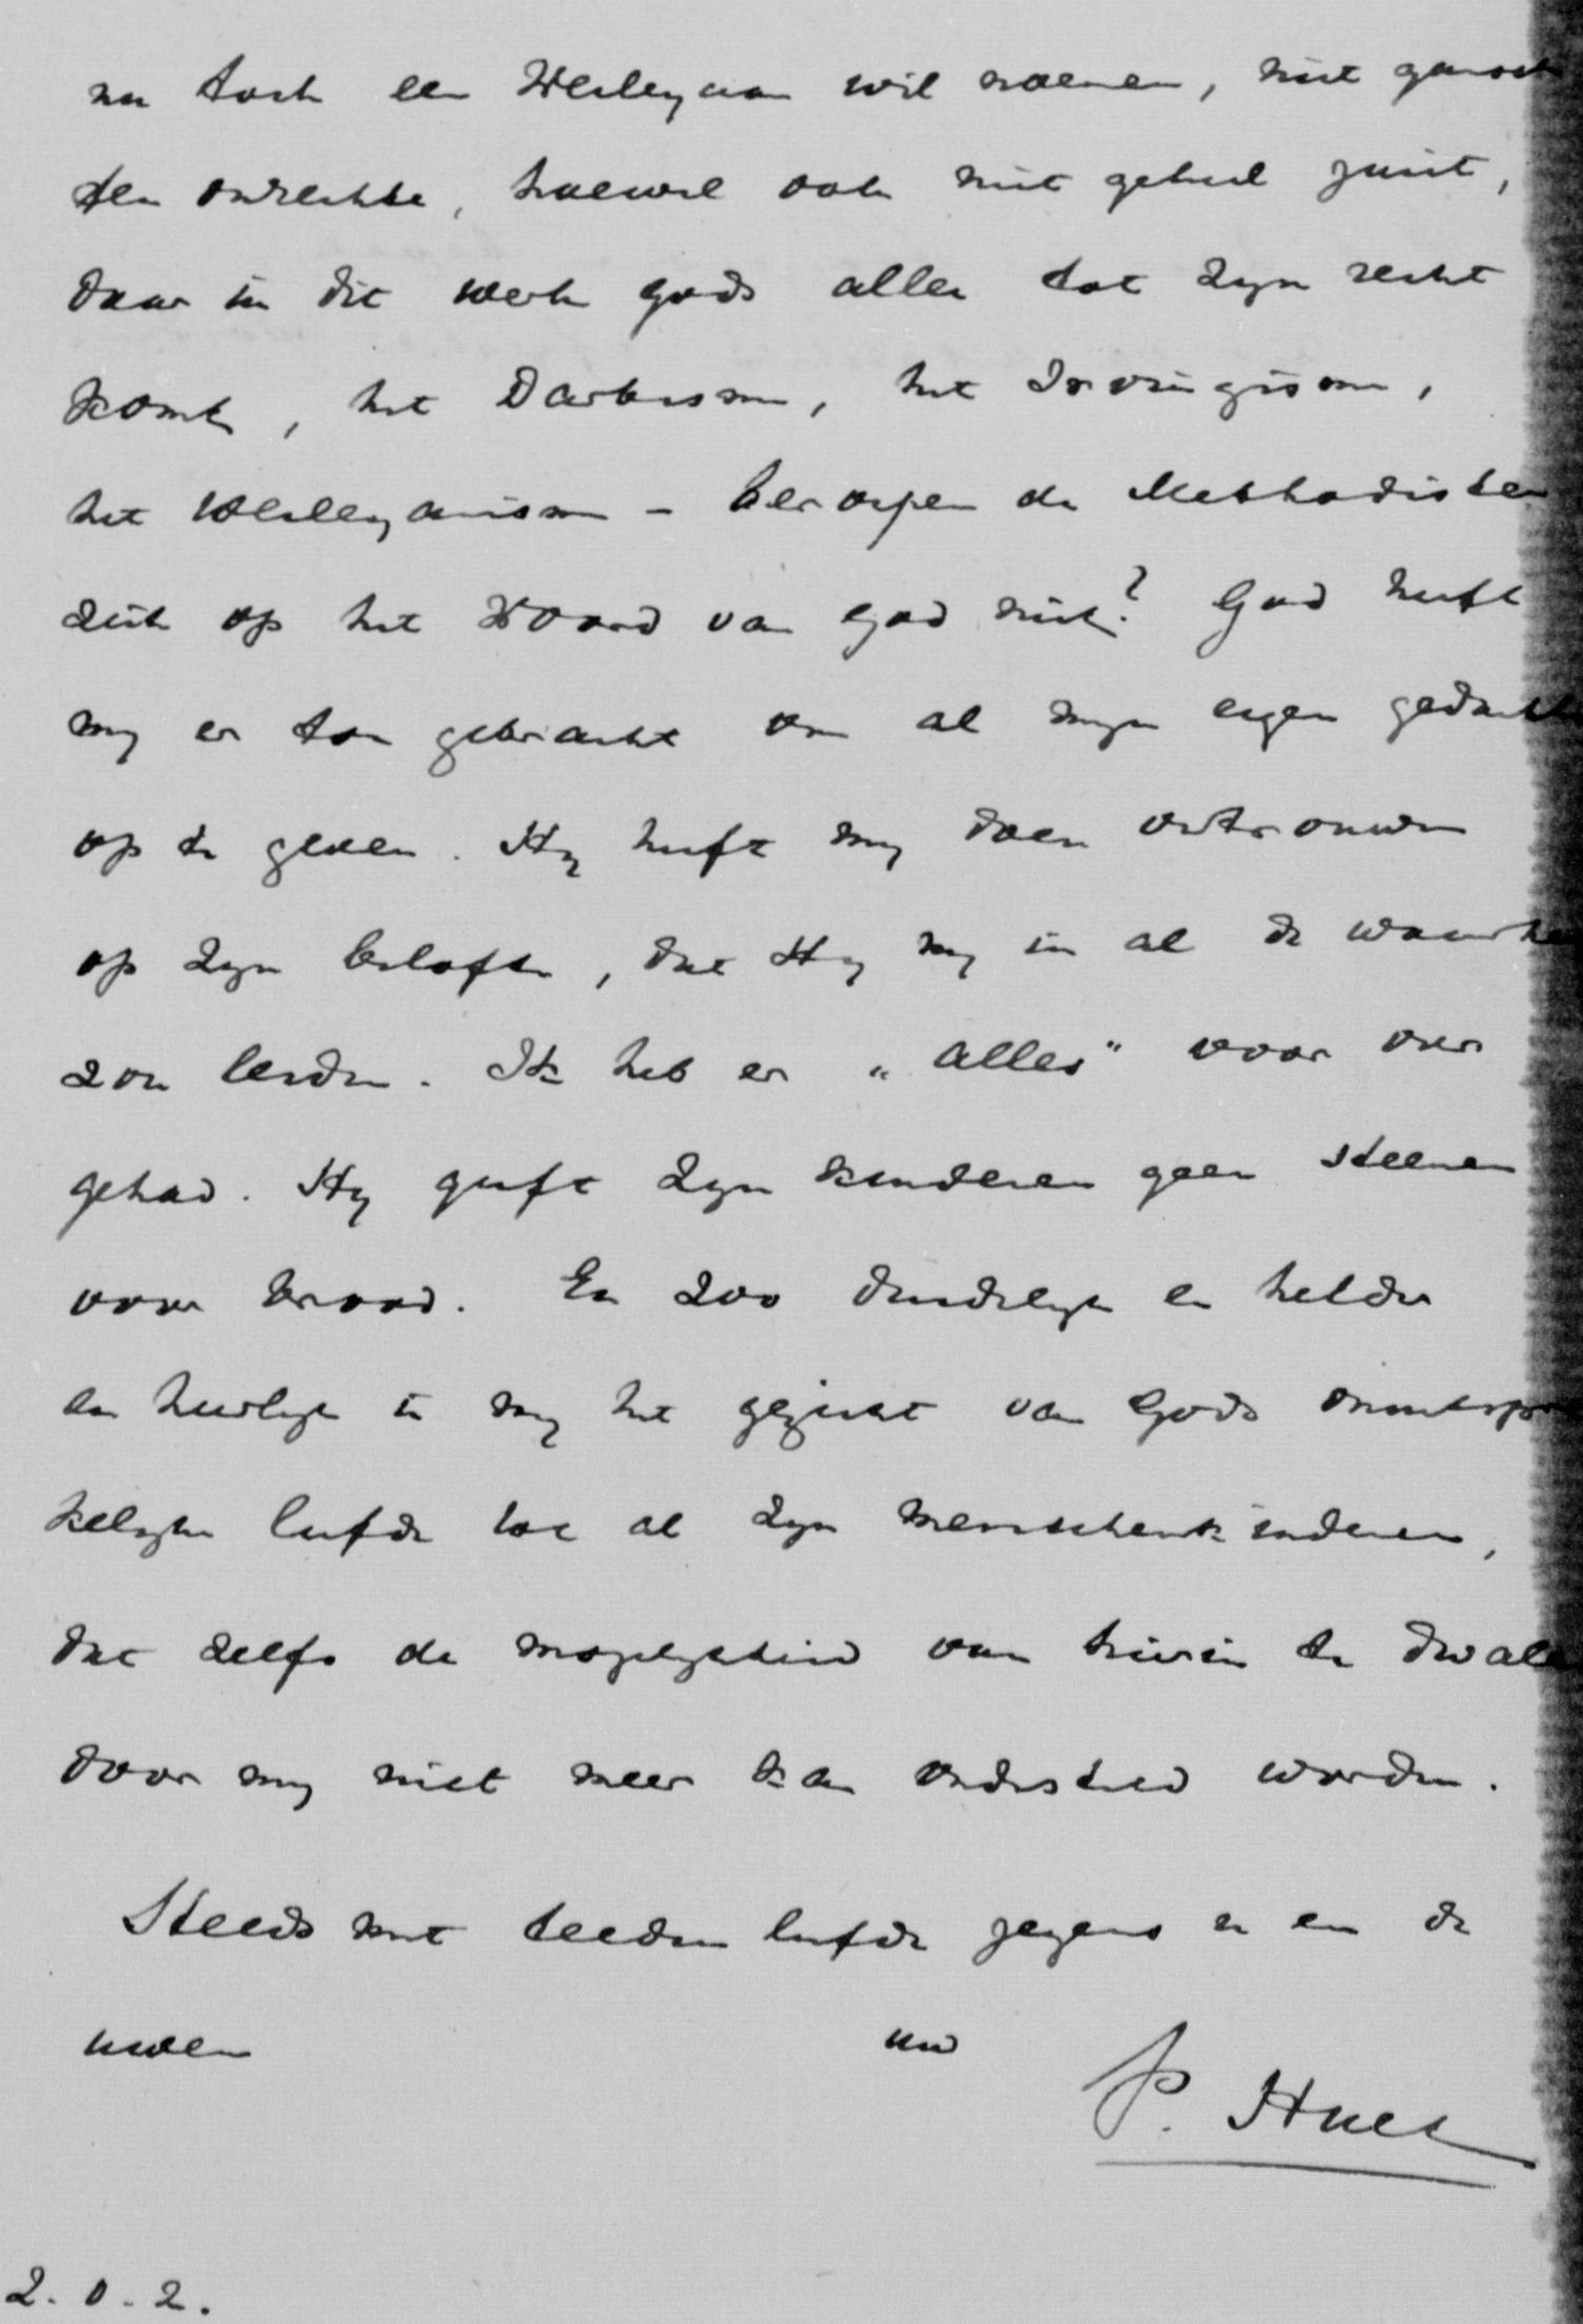 nu toch een Wesleyaan wil noemen, niet gansch
ten onrechte, hoewel ook niet geheel juist,
daar in dit werk Gods alles tot zyn recht
komt, het Darbisme, het Irvingisme,
het Wesleyanisme - beroepen de Methodisten
zich op het Woord van God niet? God heeft
my er toe gebracht om al myn eigen gedacht
op te geven. Hy heeft my doen vertrouwen
op zyn belofte, dat Hy my in al de waarhe
zou leiden. Ik heb er "alles" voor over
gehad. Hy geeft zyn kinderen geen steenen
voor brood. En zoo duidelyk en helder
en heerlyk is my het gezicht van Gods onuitspre
kelyke liefde tot al zyn menschenkinderen,
dat zelfs de mogelykheid van hierin te dwale
door my niet meer kan ondersteld worden.
Steeds met teedere liefde jegens u en de
uwen uw P. Huet
Z. O. Z.